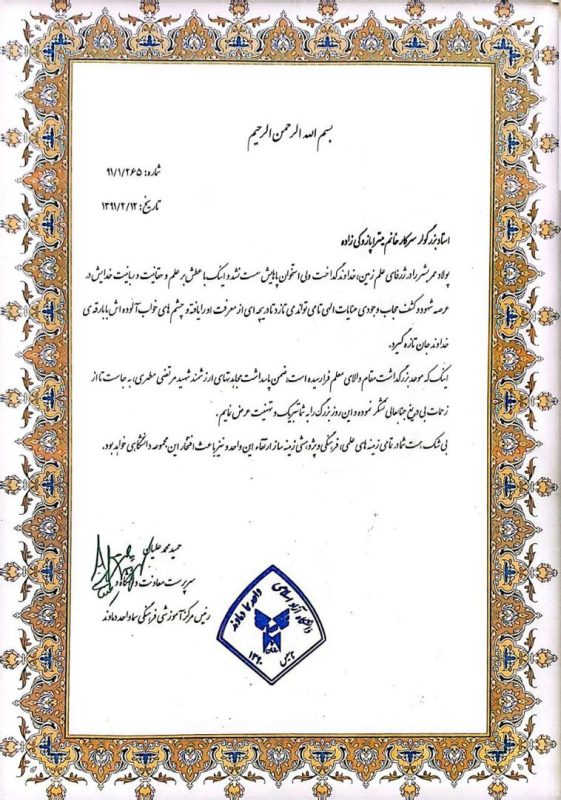 بسم الله الرحمن الرحیم
شماره: ۹۱/۱/۲۶۵
تاریخ: ۱۳۹۱/۲/۱۲
استاد بزرگوار سرکار خانم میترا پازوکی زاده
پولاد عمر بشر را در ژرفای علم زمین، خداوند گداخت ولی استخوان پاهایش سست نشد و اینک با عطش بر علم و حقانیت و ربانیت خدایش در
عرصه شهود و کشف حجاب وجودی عنایات الهی تا می تواند می تازد تا دریچه ای از معرفت او را یافته و چشم های خواب آلوده اش با بارقه ی
خداوند جان تازه گیرد.
اینک که موعد بزرگداشت مقام والای معلم فرا رسیده است، ضمن پاسداشت مجاهدتهای ارزشمند شهید مرتضی مطهری، به جاست تا از
زحمات بی دریغ جنابعالی تشکر نموده و این روز بزرگ را به شما تبریک و تهنیت عرض نمایم.
بی شک همت شما در تمامی زمینه های علمی، فرهنگی و پژوهشی زمینه ساز ارتقاء این واحد و نیز باعث افتخار این مجموعه دانشگاهی خواهد بود.
حمید محمد علیان
سرپرست معاونت دانشگاه
رئیس مرکز آموزشی فرهنگی سما واحد دماوند
دانشگاه آزاد اسلامی
واحد سما دماوند
۱۳۹۰